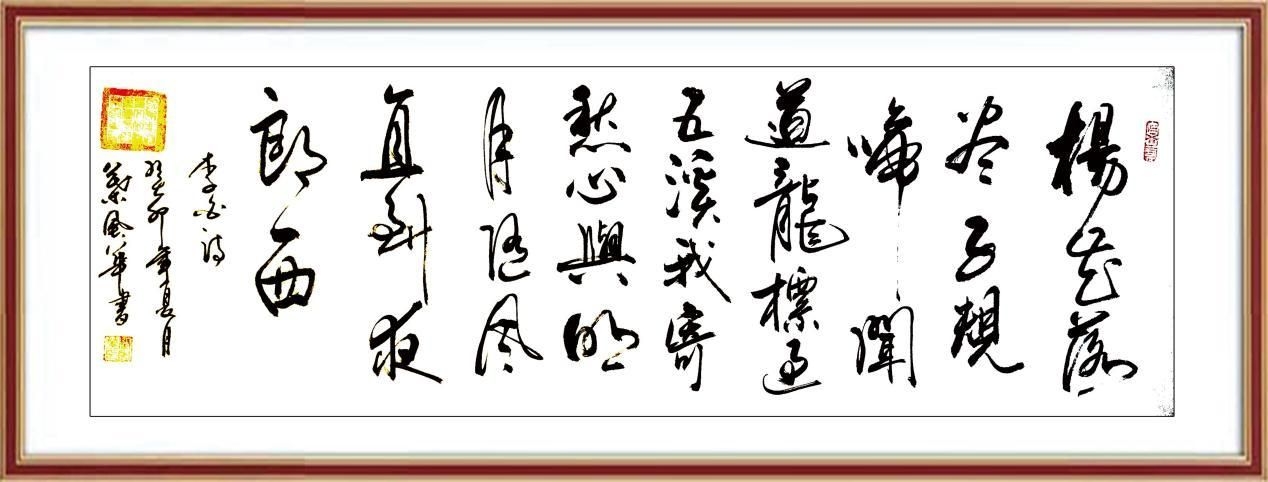 楊花落
尽子規
啼聞
道龍標過
五溪我寄
愁心與明
月随风
直到夜
郎西
李白詩
癸卯年夏月
葉風華書